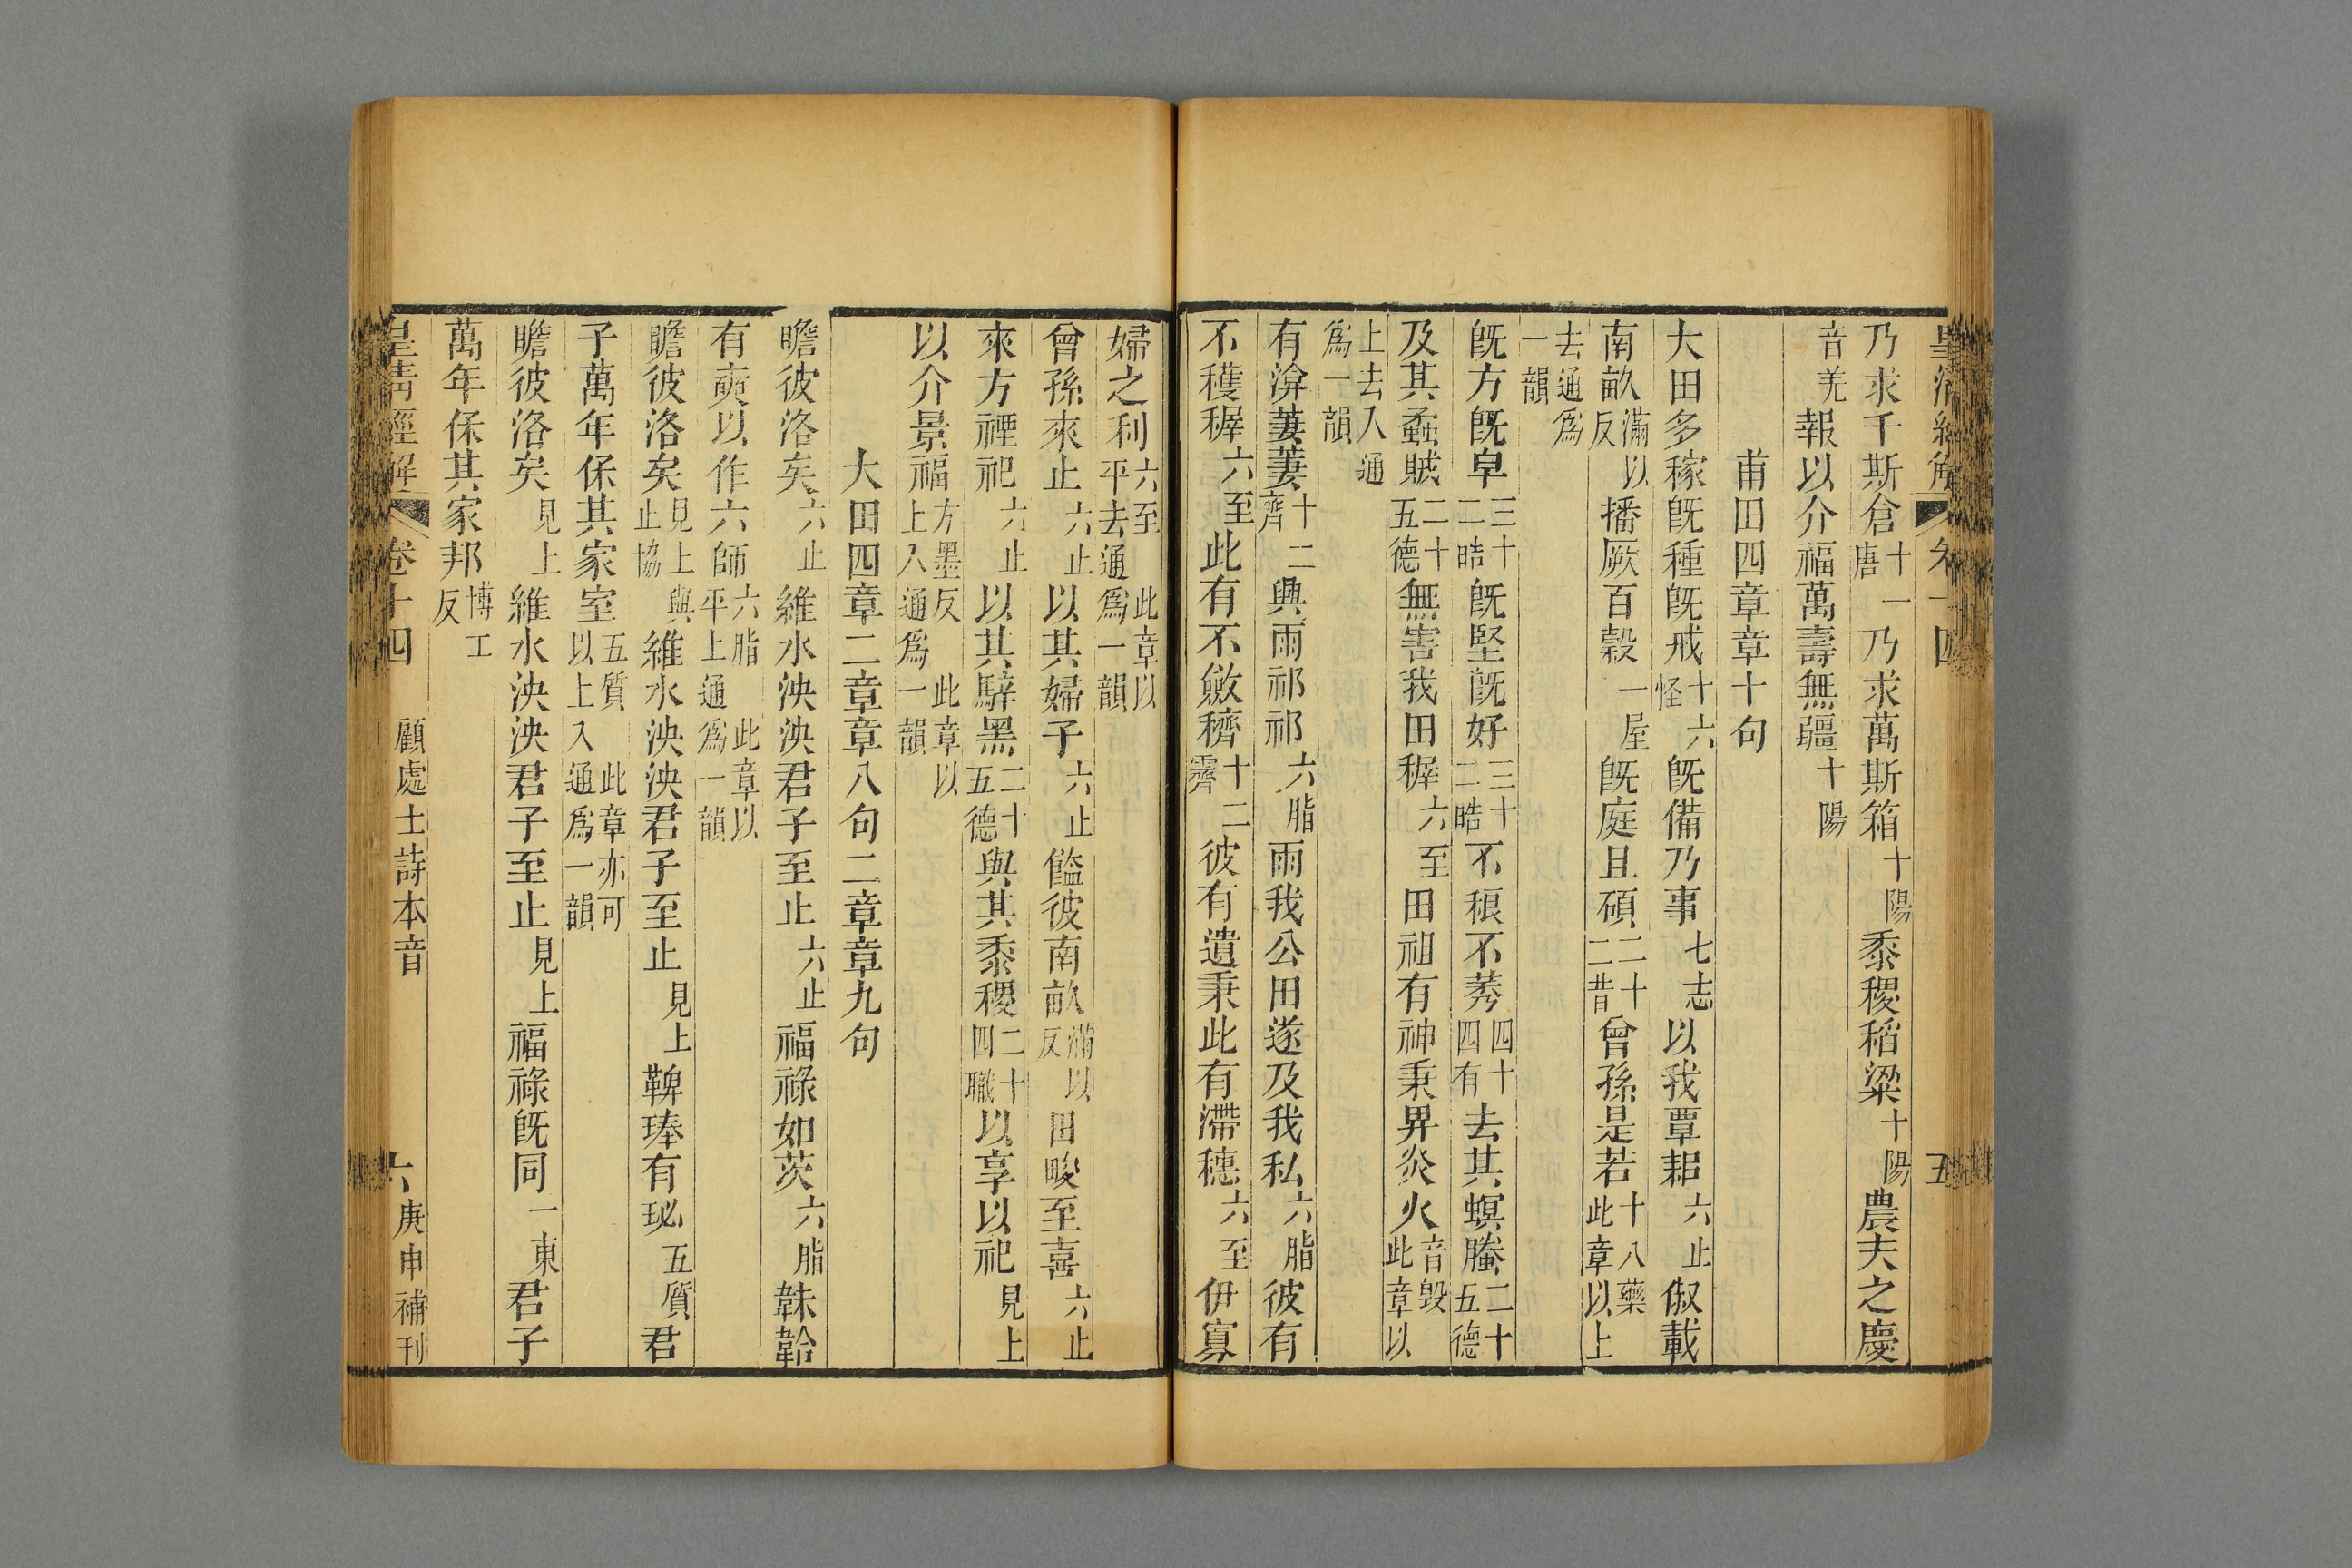 皇清經解 卷十四 五
乃求千斯倉十一唐乃求萬斯箱十陽黍稷稻粱十陽農夫之慶
音羌報以介福萬壽無疆十陽
甫田四章章十句
大田多稼旣種旣戒十六怪旣備乃事七志以我覃耜六止俶載
南畝滿以反播厥百穀一屋旣庭且碩二十二昔曾孫是若十八藥此章以上
去通爲一韻
旣方旣皁三十二晧旣堅旣好三十二晧不稂不莠四十四有去其螟螣二十五德
及其蟊賊二十五德無害我田穉六至田祖有神秉畀炎火音毀此章以
上去入通爲一韻
有渰萋萋十二齊興雨祁祁六脂雨我公田遂及我私六脂彼有
不穫穉六至此有不斂穧十二霽彼有遺秉此有滯穗六至伊寡
婦之利六至此章以平去通爲一韻
曾孫來止六止以其婦子六止饁彼南畝滿以反田畯至喜六止
來方禋祀六止以其騂黑二十五德與其黍稷二十四職以享以祀見上
以介景福方墨反此章以上入通爲一韻
大田四章二章章八句二章章九句
瞻彼洛矣六止維水泱泱君子至止六止福祿如茨六脂韎韐
有奭以作六師六脂此章以平上通爲一韻
瞻彼洛矣見上與止協維水泱泱君子至止見上鞞琫有珌五質君
子萬年保其家室五質此章亦可以上入通爲一韻
瞻彼洛矣見上維水泱泱君子至止見上福祿旣同一東君子
萬年保其家邦博工反
皇清經解 卷十四 顧處士詩本音 六 庚申補刊